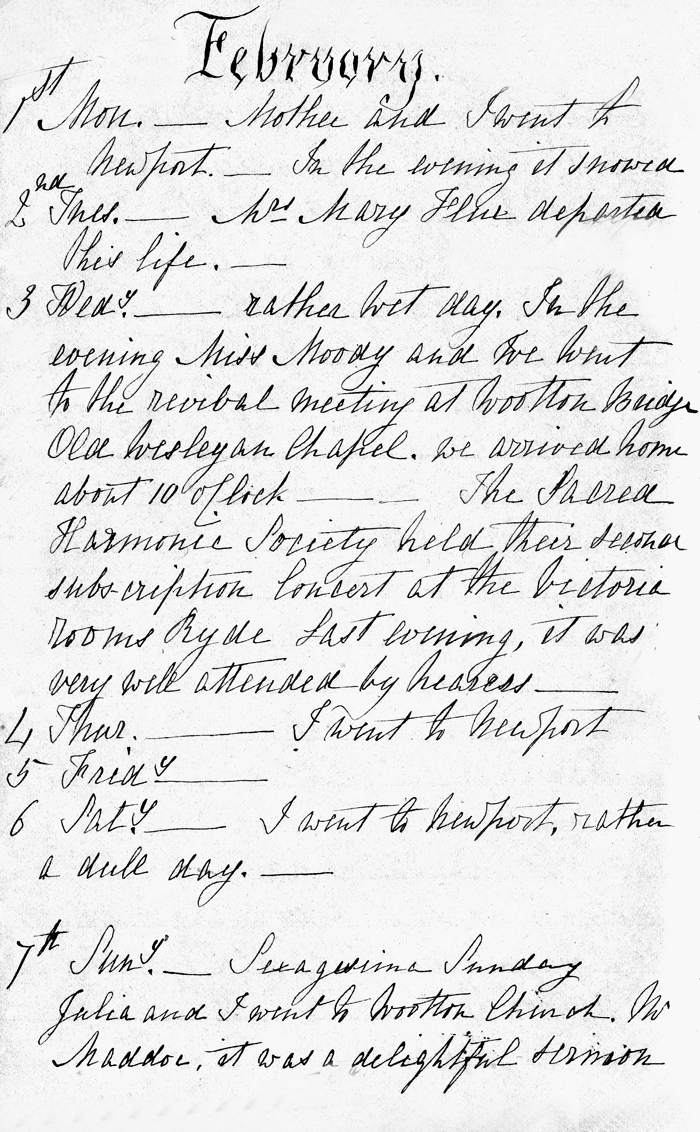 February.
1st Mon. — Mother and I went to
Newport. — In the evening it snowed
2nd Tues. — Mrs Mary Flux departed
this life. —
3 Wedy. — rather wet day. In the
evening Miss Moody and we went
to the revival meeting at Wootton Bridge
Old Wesleyan Chapel. we arrived home
about 10 oClock — — The Sacred
Harmonic Society held their second
subscription Concert at the Victoria
rooms Ryde last evening, it was
very well attended by hearers —
4 Thur. — I went to Newport
5 Fridy —
6 Saty — I went to Newport, rather
a dull day. —
7th Suny. — Sexagesima Sunday
Julia and I went to Wootton Church. Mr
it was a delightful sermon